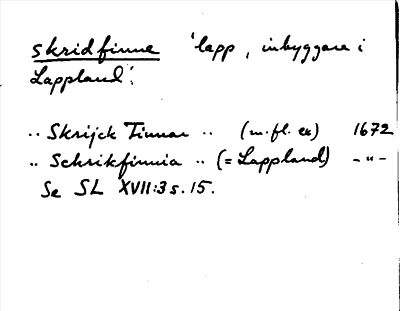 skridfinne 'lapp, inbyggare i
Lappland'.
.. Skrijck Finnar .. (m.fl. ex) 1672
.. Schrikfinnia .. (= Lappland) -"-
Se SL XVII:3 s. 15.